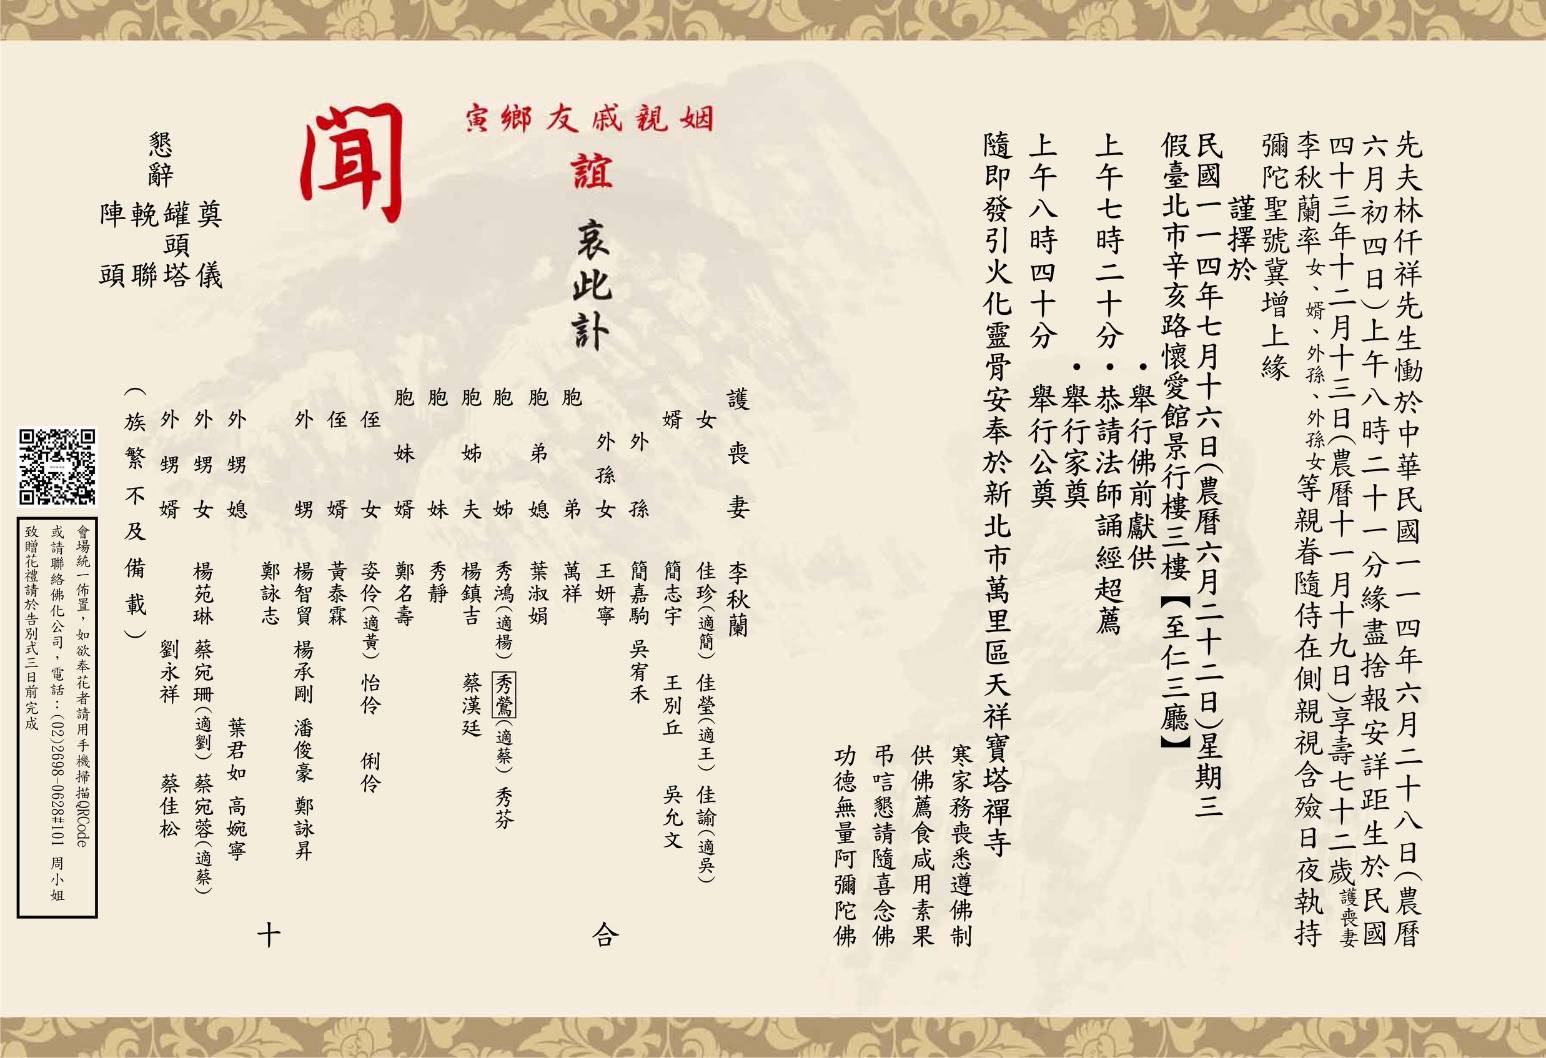 先夫林仟祥先生慟於中華民國一一四年六月二十八日(農曆
六月初四日)上午八時二十一分緣盡捨報安詳距生於民國
四十三年十二月十三日(農曆十一月十九日)享壽七十二歲護喪妻
李秋蘭率女、婿、外孫、外孫女等親眷隨侍在側親視含殮日夜執持
彌陀聖號冀增上緣
謹擇於
民國一一四年七月十六日(農曆六月二十二日)星期三
假臺北市辛亥路懷愛館景行樓三樓【至仁三廳】
•舉行佛前獻供
上午七時二十分•恭請法師誦經超薦
•舉行家奠
上午八時四十分 舉行公奠
隨即發引火化靈骨安奉於新北市萬里區天祥寶塔禪寺
寒家務喪悉遵佛制
供佛薦食咸用素果
弔唁懇請隨喜念佛
功德無量阿彌陀佛
寅鄉友戚親姻
誼
哀此訃
聞
護喪妻 李秋蘭
女 佳珍(適簡) 佳瑩(適王) 佳諭(適吳)
婿 簡志宇 王別丘 吳允文
外孫 簡嘉駒 吳宥禾
外孫女 王妍寧
胞弟 萬祥
胞弟媳 葉淑娟
胞姊 秀鴻(適楊) 秀鶯(適蔡) 秀芬
胞姊夫 楊鎮吉 蔡漢廷
胞妹 秀靜
胞妹婿 鄭名壽
侄女 姿伶(適黃) 怡伶 俐伶
侄婿 黃泰霖
外甥 楊智貿 楊承剛 潘俊豪 鄭詠昇
鄭詠志
外甥媳 葉君如 高婉寧
外甥女 楊苑琳 蔡宛珊(適劉) 蔡宛蓉(適蔡)
外甥婿 劉永祥 蔡佳松
合
十
(族繁不及備載)
懇辭
奠儀
罐頭塔
輓聯
陣頭
會場統一佈置,如欲奉花者請用手機掃描QRCode
或請聯絡佛化公司,電話:(02)2698-0628#101 周小姐
致贈花禮請於告別式三日前完成